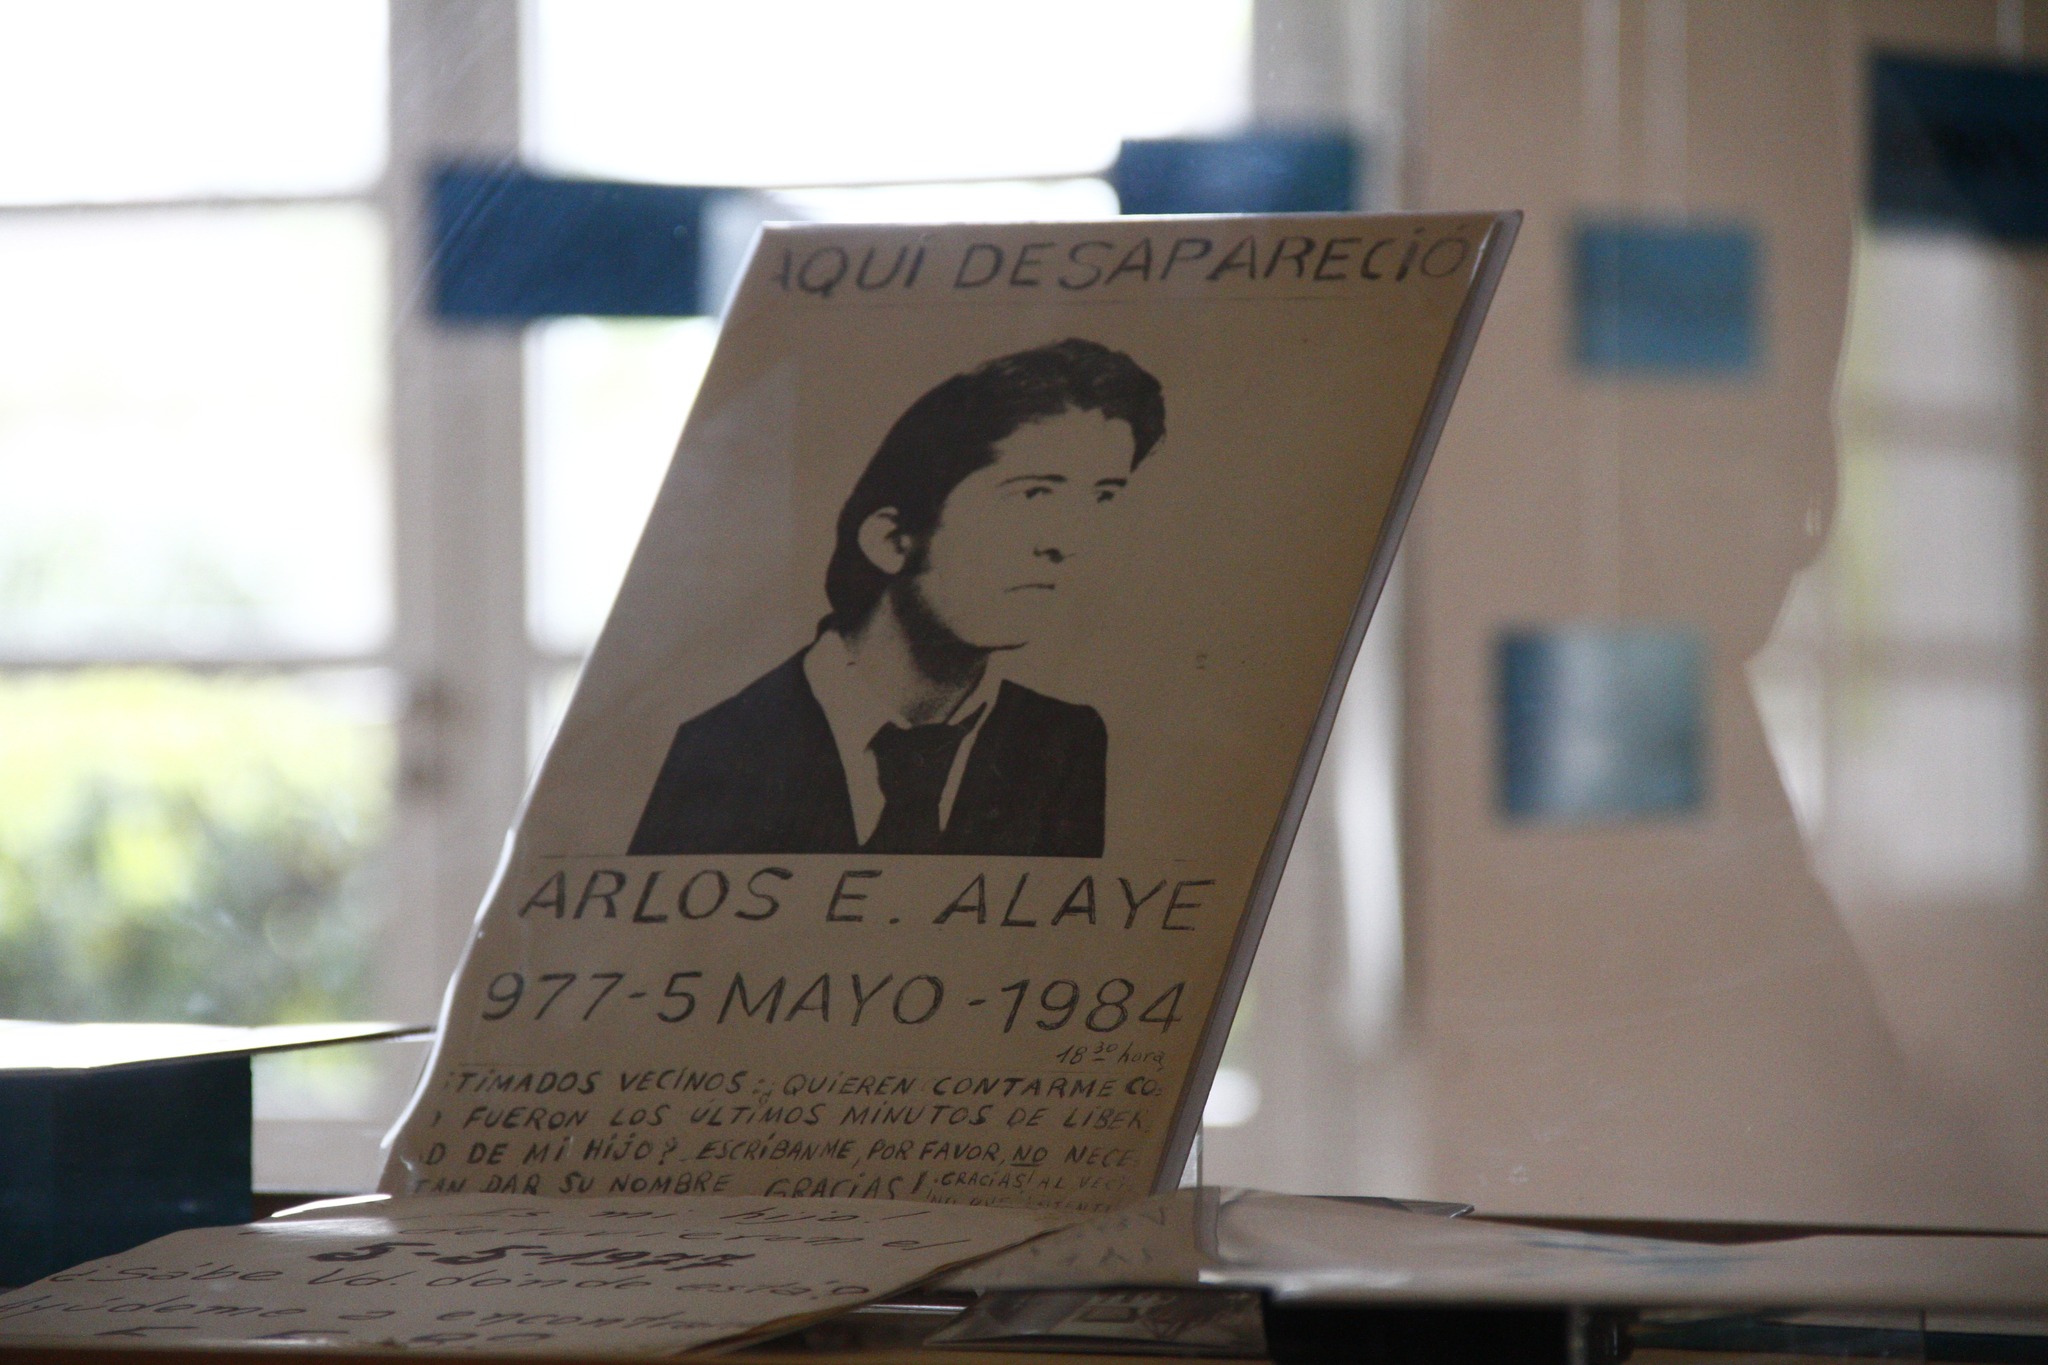 AQUÍ DESAPARECIÓ
ARLOS E. ALAYE
977-5 MAYO-1984
18 30 hora
TIMADOS VECINOS: ¿QUIEREN CONTARME CO
FUERON LOS ÚLTIMOS MINUTOS DE LIBER
D DE MI HIJO? ESCRÍBANME, POR FAVOR, NO NECE
TAN DAR SU NOMBRE GRACIAS! ¡GRACIAS! AL VEC
Es mi hijo!
el
5-5-1977
¿Sabe Vd. dónde está?
Ayúdeme a encontra